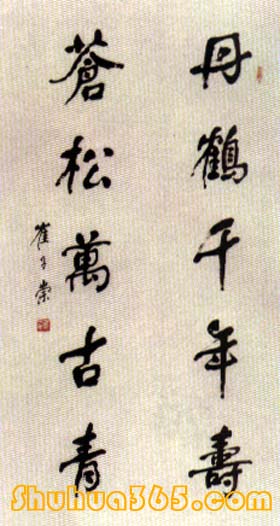 丹鶴千年壽
蒼松萬古青
崔子崇
Shuhua365.com